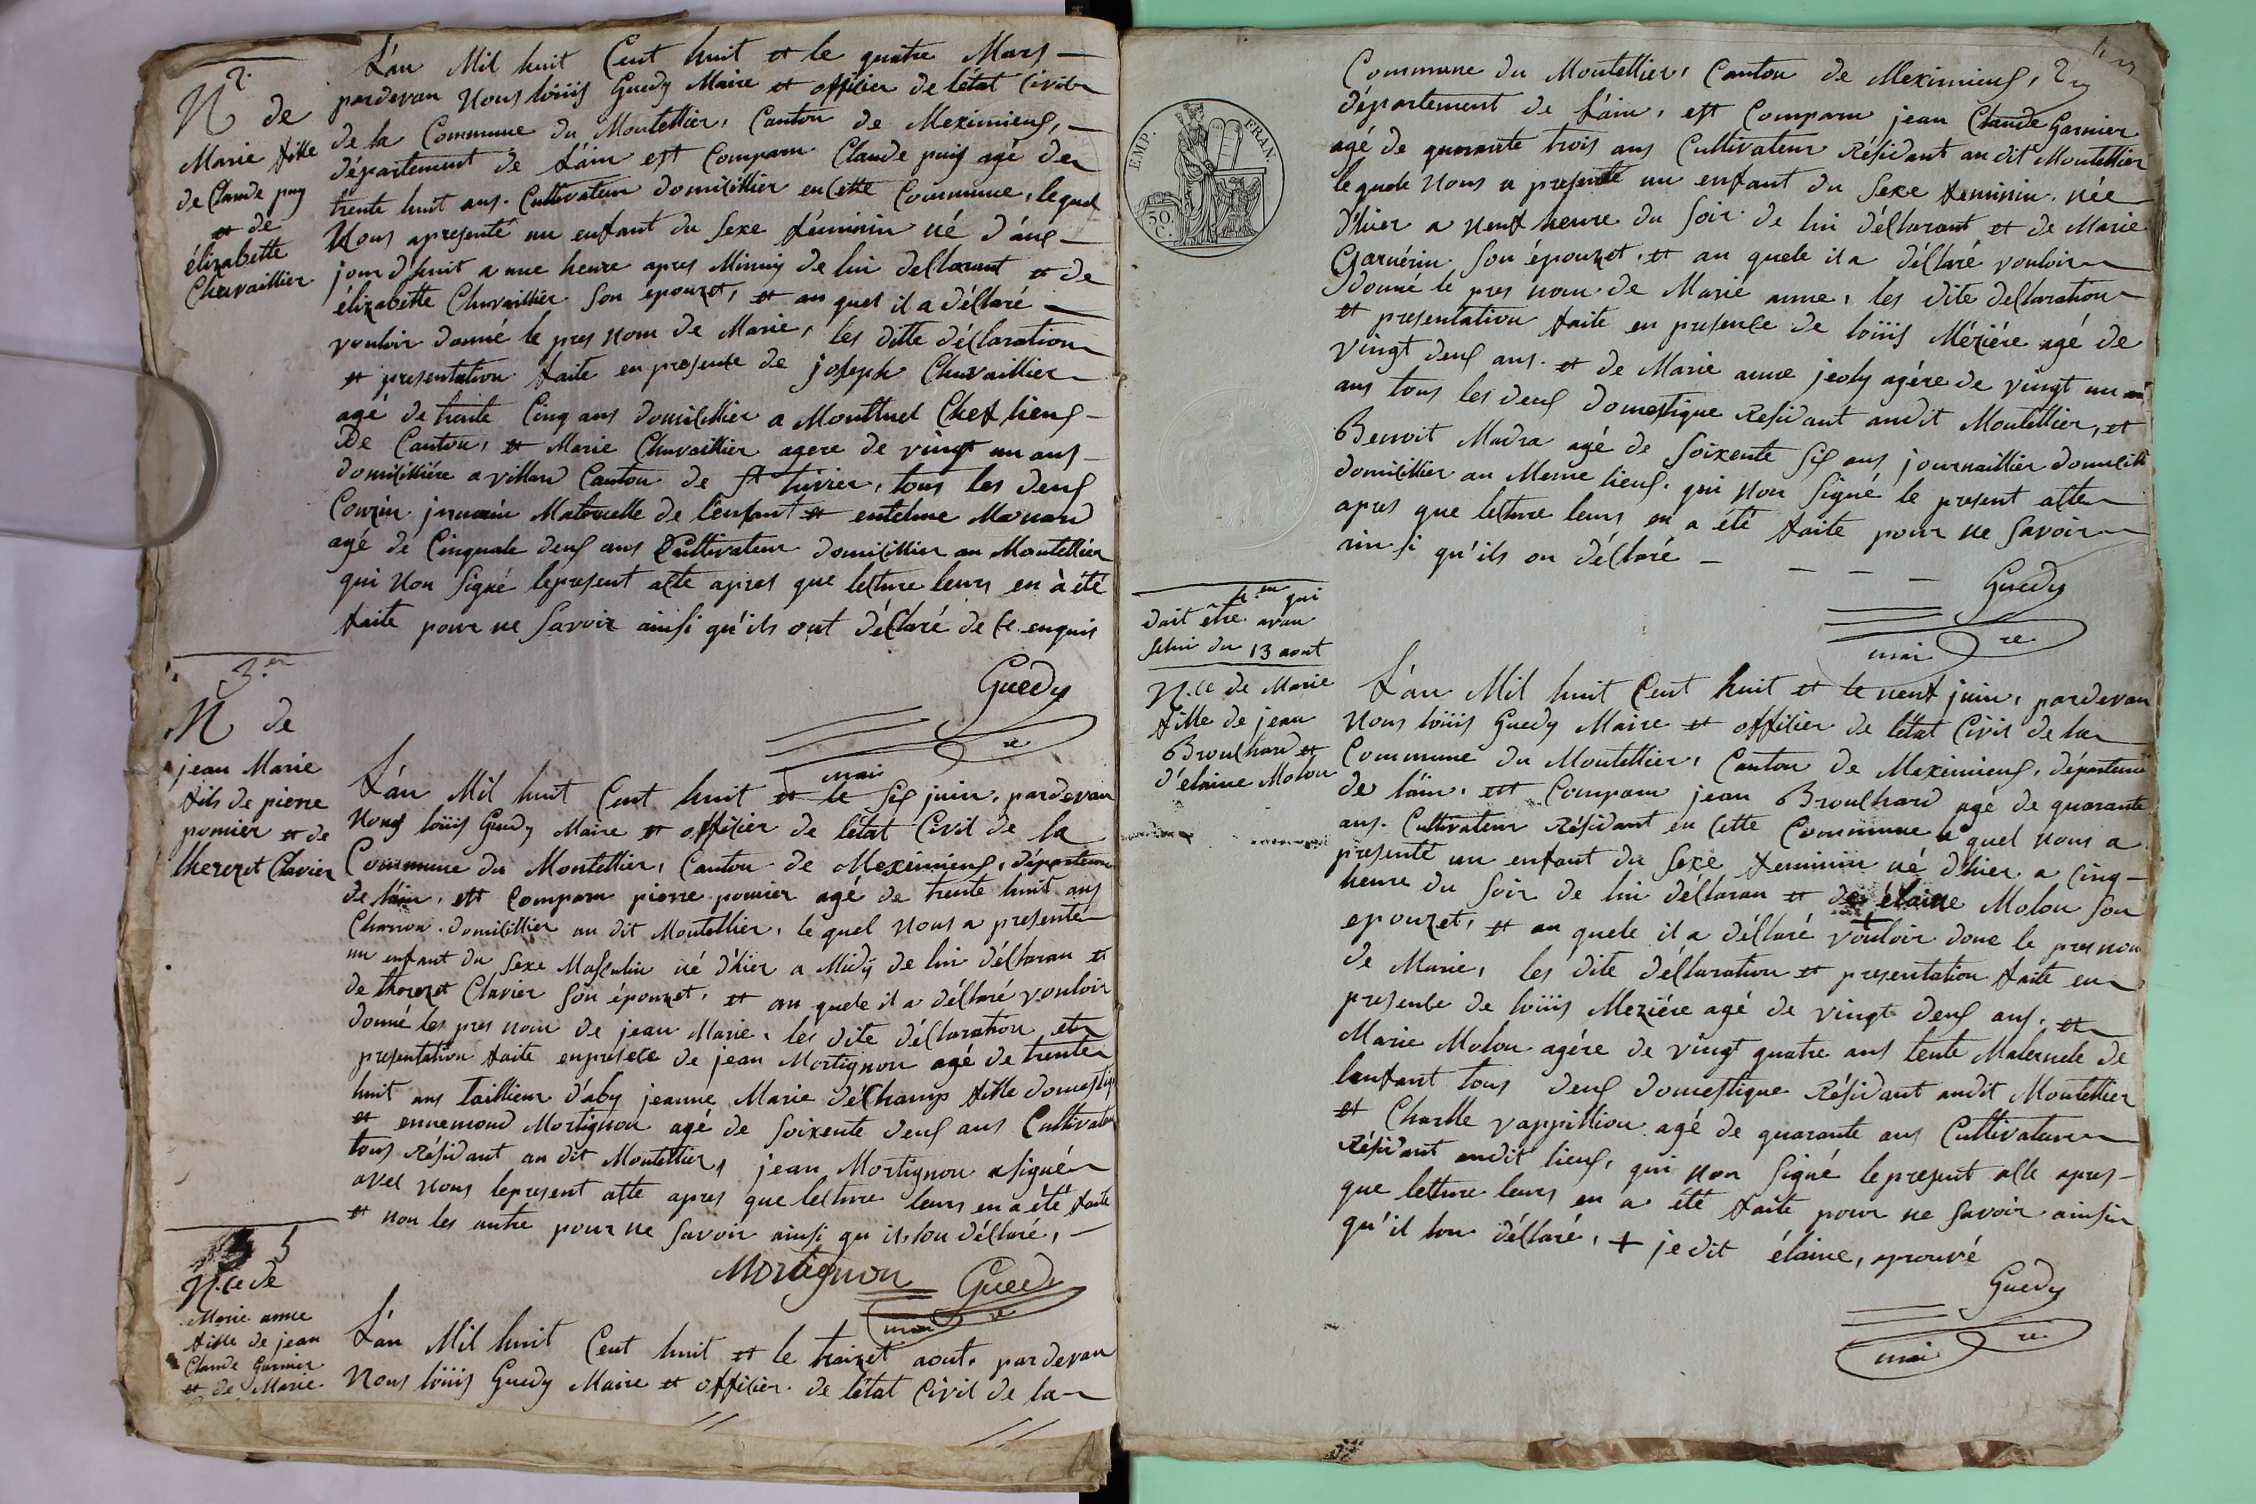 2.
N de
Marie fille
de Claude puy
et de
élizabette
Chevaillier
L'an Mil huit Cent huit et le quatre Mars
pardevan Nous loüis Guedy Maire et offisier de l'état Civil
de la Commune du Montellier, Canton de Meximieux,
département de L'ain est Comparu Claude puis agé de
trente huit ans. Cultivateur domicillier en Cette Commune, lequel
Nous apresenté un enfant du Sexe féminin né d'aux
jour d'huit a une heure apres Minuis de lui declarant et de
élizabette Chevaillier Son epouzet, et au quel il a déclaré
vouloir donné le pres nom de Marie, les ditte déclaration
et presentation faite en presence de joseph Chevaillier
agé de trente Cinq ans domicillier a Montluel Chef lieux
De Canton, et Marie Chevaillier agere de vingt un ans
domicilliére a villard Canton de St trivier, tous les deux
Couzin jermain Maternelle de l'enfant et entelme Monard
agé de Cinquate deux ans Cultivateur domicillier au Montellier
qui Non Signé lepresent acte apres que lecture leurs en à été
faite pour ne Savoir ainsi qu'ils ont déclaré de Ce enquis
Guedy
maire
3.er
N de
jean Marie
fils de pierre
pomier et de
therezet Clavier
L'an Mil huit Cent huit et le Six juin, pardevan
Nous loüis Guedy Maire et offisier de l'état Civil de la
Commune du Montellier, Canton de Meximieux, département
de l'ain, est Comparu pierre pomier agé de trente huit ans
Charron domicillier au dit Montellier, le quel Nous a presenté
un enfant du Sexe Masculin né d'hier a Midÿ de lui déclaran et
de therezet Clavier Son épouzet, et au quele il a déclaré vouloir
donné les pres nom de jean Marie, les dite déclaration et
presentation faite enpresece de jean Mortignon agé de trente
huit ans Taillieur d'aby jeanne Marie déChamp fille domestiq
et ennemond Mortignon agé de Soixente deux ans Cultivateu
tous Résidant au dit Montellier, jean Mortignon a signé
avec Nous lepresent acte apres que lecture leurs en a été faite
et non les autre pour ne Savoir ainsi qu ils lon déclaré,
Mortignon Guedy
maire
5
N.ce de
Marie anne
fille de jean
Claude Garnier
et de Marie
L'an Mil huit Cent huit et le traizet aout, pardevan
Nous loüis Guedy Maire et offisier de l'état Civil de la
Commune du Montellier, Canton de Meximieux,
département de L'ain, est Comparu jean Claude Garnier
agé de quarante trois ans Cultivateur Résidant audit Montellier
lequele Nous a presenté un enfant du Sexe feminin née
d'hier a Neuf heure du Soir de lui déclarant et de Marie
Garnérin Son épouzet, et au quele il a déclaré vouloir
donné le pres nom de Marie anne, les dite declaration
et presentation faite en presence de loüis Méziére agé de
vingt deux ans et de Marie anne jeoly agére de vingt un
ans tous les deux domestique Residant audit Montellier, et
Benoit Madra agé de Soixente Six ans journaillier domicill
domicillier au Meme lieux, qui Non Signé le present acte
apres que lecture leurs en a été faite pour ne Savoir
ainsi qu'ils on déclaré
Guedy
maire
EMP. FRAN.
50 C.
4.eu qui
doit être avan
Selui du 13 aout
N.ce de Marie
fille de jean
Brouchard et
d'élaine Molon
L'an Mil huit Cent huit et le neuf juin, pardevan
Nous loüis Guedy Maire et offisier de l'état Civil de la
Commune du Montellier, Canton de Meximieux, département
de l'ain, est Comparu jean Brouchard agé de quarante
ans. Cultivateur Résidant en Cette Commune lequel Nous a
presenté un enfant du Sexe feminin né d'hier a Cinq
heure du Soir de lui déclaran et de élaine Molon Son
epouzet, et au quele il a déclaré vouloir doné le pres nom
de Marie, les dite déclaration et presentation faite en
presence de loüis Meziére agé de vingt deux ans, et
Marie Molon agére de vingt quatre ans tente Maternele de
lenfant tous deux domestique Résidant audit Montellier
et Charlle vappillion agé de quarante ans Cultivateur
Résidant audit lieux, qui Non Signé lepresent acte apres
que lecture leurs en a été faite pour ne Savoir ainsi
qu'il lon déclaré, + je dit élaine, aprouvé
Guedy
maire